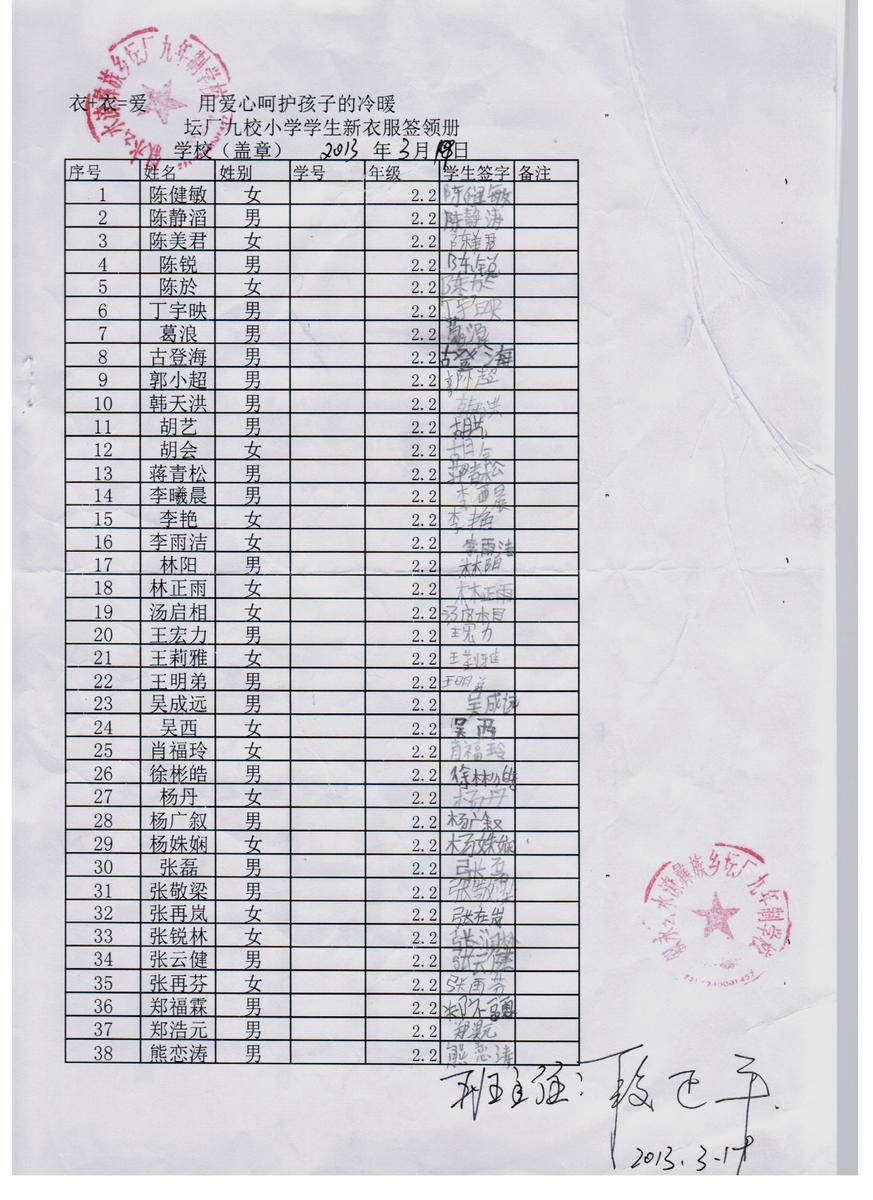 衣+衣=爱 用爱心呵护孩子的冷暖
坛厂九校小学学生新衣服签领册
学校（盖章） 2013 年 3月 日
序号 姓名 性别 学号 年级 学生签字 备注
1 陈健敏 女 2.2 陈健敏
2 陈静滔 男 2.2 陈静涛
3 陈美君 女 2.2 陈美君
4 陈锐 男 2.2 陈锐
5 陈於 女 2.2
6 丁宇映 男 2.2 丁宇映
7 葛浪 男 2.2 葛浪
8 古登海 男 2.2 古登海
9 郭小超 男 2.2
10 韩天洪 男 2.2
11 胡艺 男 2.2 胡艺
12 胡会 女 2.2 胡会
13 蒋青松 男 2.2 蒋青松
14 李曦晨 男 2.2
15 李艳 女 2.2 李艳
16 李雨洁 女 2.2 李雨洁
17 林阳 男 2.2 林阳
18 林正雨 女 2.2 林正雨
19 汤启相 女 2.2 汤启相
20 王宏力 男 2.2 王宏力
21 王莉雅 女 2.2 王莉雅
22 王明弟 男 2.2 王明弟
23 吴成远 男 2.2 吴成远
24 吴西 女 2.2 吴西
25 肖福玲 女 2.2 肖福玲
26 徐彬皓 男 2.2
27 杨丹 女 2.2 杨丹
28 杨广叙 男 2.2 杨广叙
29 杨姝娴 女 2.2
30 张磊 男 2.2
31 张敬梁 男 2.2
32 张再岚 女 2.2
33 张锐林 女 2.2
34 张云健 男 2.2 张云健
35 张再芬 女 2.2 张再芬
36 郑福霖 男 2.2
37 郑浩元 男 2.2
38 熊恋涛 男 2.2 熊恋涛
班主任：段正平
2013.3.19